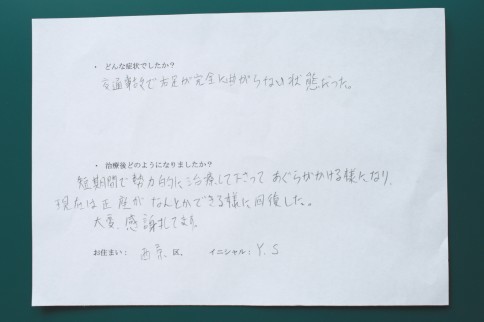 ・ どんな症状でしたか？
交通事故で右足が完全に曲がらない状態だった。
・ 治療後どのようになりましたか？
短期間で勢力的に治療して下さって あぐらがかける様になり、
現在は正座がなんとかできる様に回復した。
大変、感謝してます。
お住まい： 西京 区、 イニシャル： Y. S